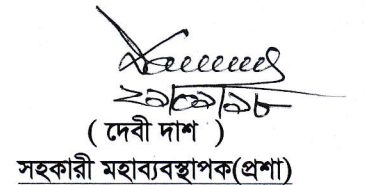 ২৯/০৯/১৮
( দেবী দাশ )
সহকারী মহাব্যবস্থাপক(প্রশা)